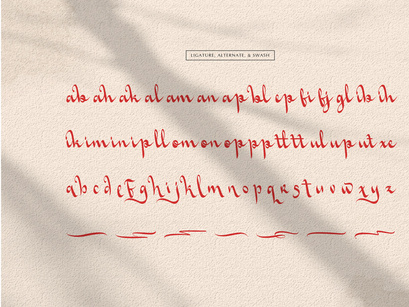 LIGATURE, ALTERNATE, & SWASH
ab ah ak al am an ap bl ep fi fj gl ib ih
ik im in in ip ll om on op pp tt tt ul up ut xe
a b c d e f g h i j k l m n o p q r s t u v w x y z